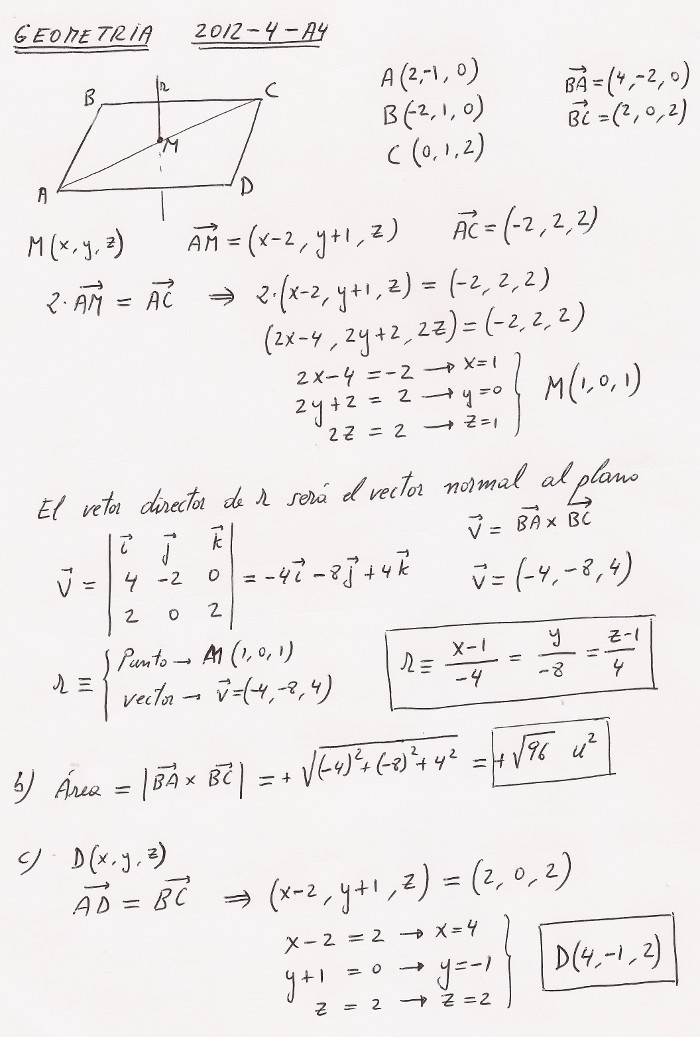 GEOMETRIA 2012-4-A4
A(2,-1,0) B⃗A⃗=(4,-2,0)
B(-2,1,0) B⃗C⃗=(2,0,2)
C(0,1,2)
B r C
M
A D
M(x,y,z) A⃗M⃗=(x-2, y+1, z) A⃗C⃗=(-2,2,2)
2·A⃗M⃗ = A⃗C⃗ ⇒ 2·(x-2, y+1, z) = (-2, 2, 2)
(2x-4, 2y+2, 2z) = (-2, 2, 2)
2x-4 = -2 → x=1
2y+2 = 2 → y=0 } M(1,0,1)
2z = 2 → z=1
El vetor director de r será el vector normal al plano
v⃗ = B⃗A⃗ x B⃗C⃗
v⃗ = | i⃗ j⃗ k⃗ |
| 4 -2 0 | = -4i⃗ -8j⃗ +4k⃗ v⃗ = (-4,-8,4)
| 2 0 2 |
r ≡ { Punto → M(1,0,1)
vector → v⃗=(-4,-8,4)
r ≡ (x-1)/-4 = y/-8 = (z-1)/4
b) Área = |B⃗A⃗ x B⃗C⃗| = +√((-4)²+(-8)²+4²) = +√96 u²
c) D(x,y,z)
A⃗D⃗ = B⃗C⃗ ⇒ (x-2, y+1, z) = (2, 0, 2)
x-2 = 2 → x=4
y+1 = 0 → y=-1 } D(4,-1,2)
z = 2 → z=2